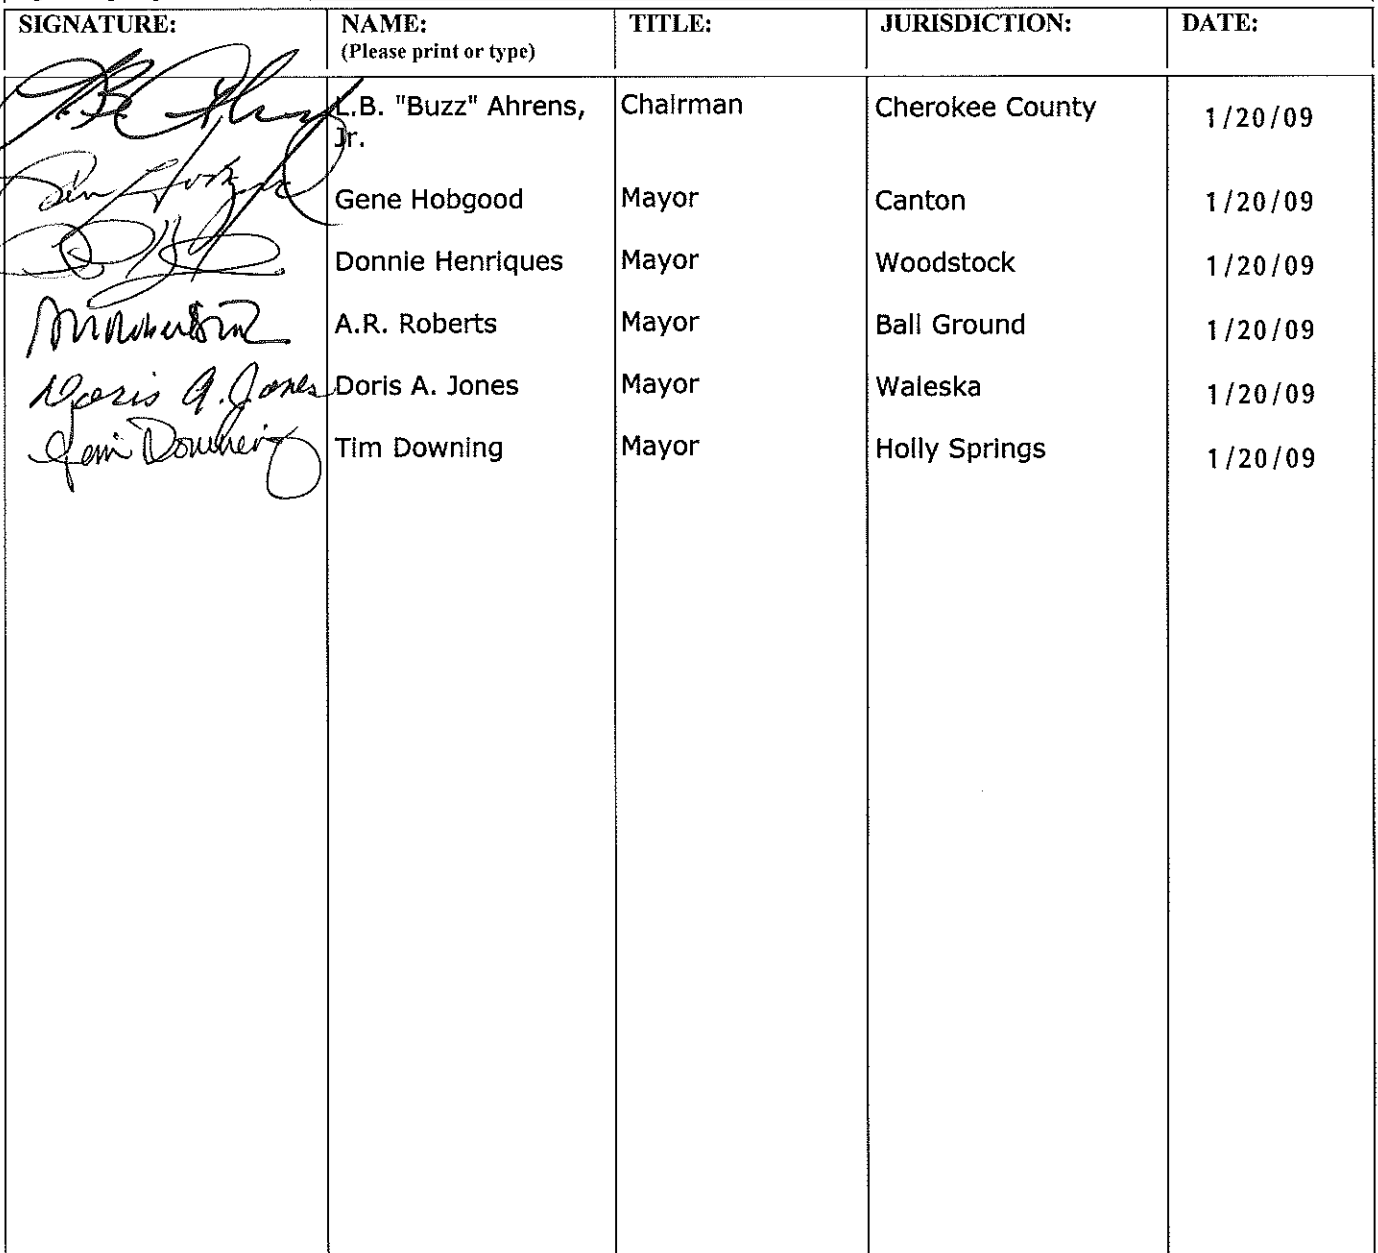 SIGNATURE: NAME: TITLE: JURISDICTION: DATE:
(Please print or type)
L.B. "Buzz" Ahrens, Chairman Cherokee County 1/20/09
Jr.
Gene Hobgood Mayor Canton 1/20/09
Donnie Henriques Mayor Woodstock 1/20/09
A.R. Roberts Mayor Ball Ground 1/20/09
Doris A. Jones Doris A. Jones Mayor Waleska 1/20/09
Tim Downing Tim Downing Mayor Holly Springs 1/20/09